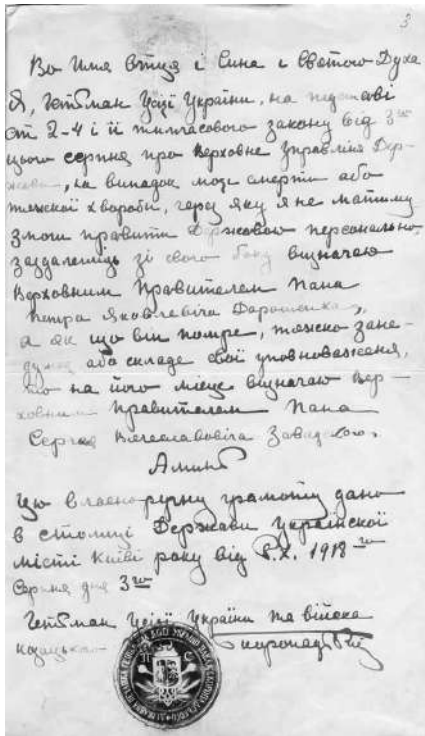 3
Во Имя Отця і Сина і Святого Духа
Я, Гетьман Усієї України, на підставі
ст 2-4 і ії тимчасового закону від 3го
цього серпня про Верховне Управління Дер-
жавою, на випадок моєї смерти або
тяжкої хвороби, через яку я не матиму
змоги правити Державою персонально,
заздалегідь зі свого боку визначаю
Верховним Правителем Пана
Петра Яковлевіча Дорошенка,
а як що він помре, тяжко зане-
дужа або складе свої уповноваженя,
то на його місце визначаю Вер-
ховним Правителем Пана
Сергея Вячеславовіча Завадского.
Аминь
Цю власноручну грамоту дано
в столиці Держави Української
місті Київі року від Р.Х. 1918го
Серпня дня 3го
Гетьман Усієї України та війска
козацького Скоропадській